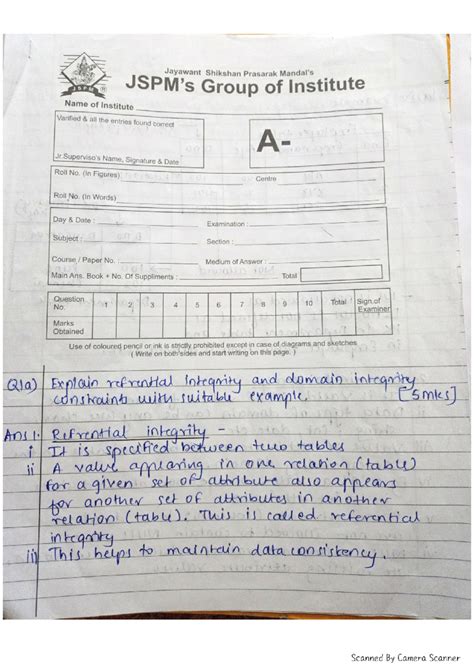 Jayawant Shikshan Prasarak Mandal's
JSPM's Group of Institute
JSPM
Name of Institute
Varified & all the entries found correct
Jr.Superviso's Name, Signature & Date
A-
Roll No. (In Figures)
Centre
Roll No. (In Words)
Day & Date :
Examination :
Subject :
Section :
Course / Paper No. :
Medium of Answer :
Main Ans. Book + No. Of Suppliments :
Total
Question No. 1 2 3 4 5 6 7 8 9 10 Total Sign.of Examiner
Marks Obtained
Use of coloured pencil or ink is strictly prohibited except in case of diagrams and sketches
( Write on both sides and start writing on this page. )
Q1a) Explain refrential integrity and domain integrity
constraints with suitable example. [5mks]
Ans 1. Refrential integrity -
i It is specified between two tables
ii A value appearing in one relation (table)
for a given set of attribute also appears
for another set of attributes in another
relation (table). This is called referential
integrity
iii) This helps to maintain data consistency.
Scanned By Camera Scanner